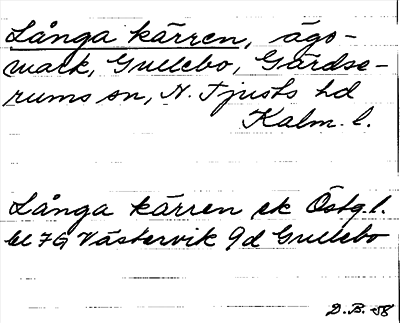 Långa kärren, ägo-
mark, Gullebo, Gärdse-
rums sn, N. Tjusts hd
Kalm. l.
Långa kärren ek Östg. l.
bl 76 Västervik 9d Gullebo
D.B. -58